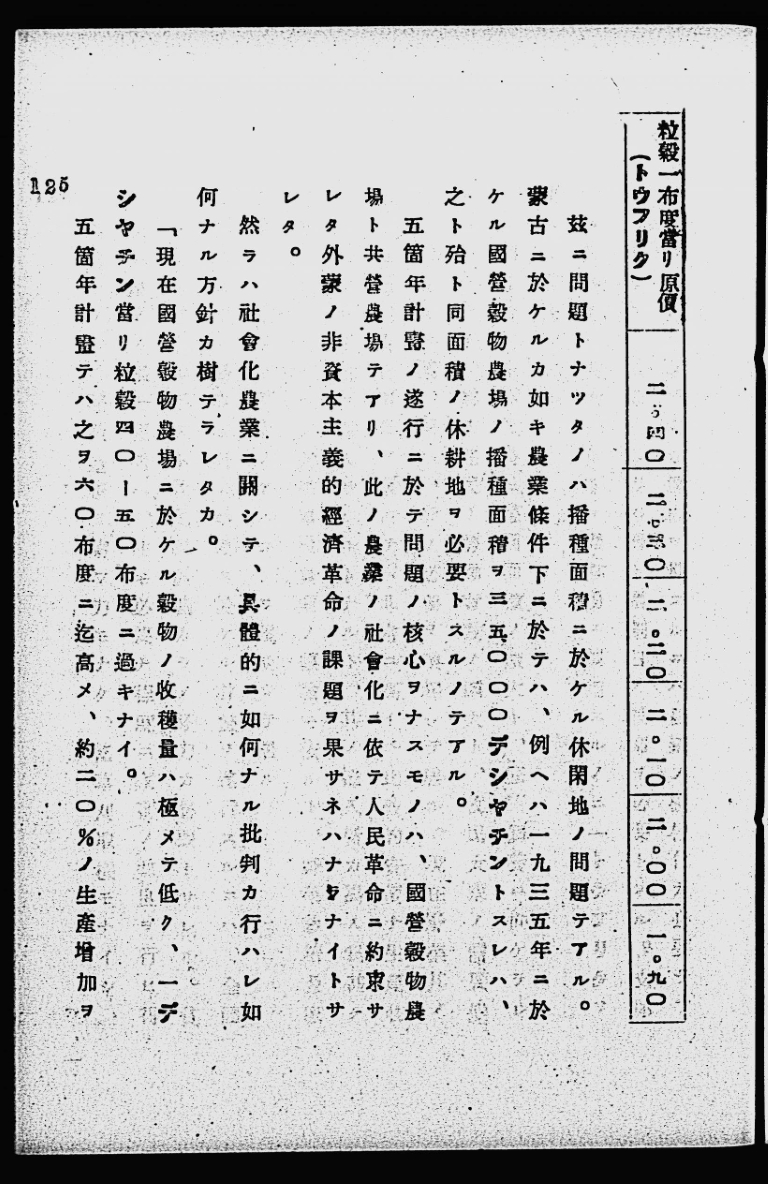 粒穀一布度當リ原價
(トウフリク)
二.四〇
二.三〇
二。二〇
二。一〇
二。〇〇
一。九〇
玆ニ問題トナツタノハ播種面積ニ於ケル休閑地ノ問題テアル。
蒙古ニ於ケルカ如キ農業條件下ニ於テハ、例ヘハ一九三五年ニ於
ケル國營穀物農場ノ播種面積ヲ三五〇〇〇デシヤチントスレハ、
之ト殆ト同面積ノ休耕地ヲ必要トスルノテアル。
五箇年計畫ノ遂行ニ於テ問題ノ核心ヲナスモノハ、國營穀物農
場ト共營農場テアリ、此ノ農業ノ社會化ニ依テ人民革命ニ約束サ
レタ外蒙ノ非資本主義的經濟革命ノ課題ヲ果サネハナラナイトサ
レタ。
然ラハ社會化農業ニ關シテ、具體的ニ如何ナル批判カ行ハレ如
何ナル方針カ樹テラレタカ。
「現在國營穀物農場ニ於ケル穀物ノ收穫量ハ極メテ低ク、一デ
シヤチン當リ粒穀四〇ー五〇布度ニ過キナイ。
五箇年計畫テハ之ヲ六〇布度ニ迄高メ、約二〇%ノ生產增加ヲ
125